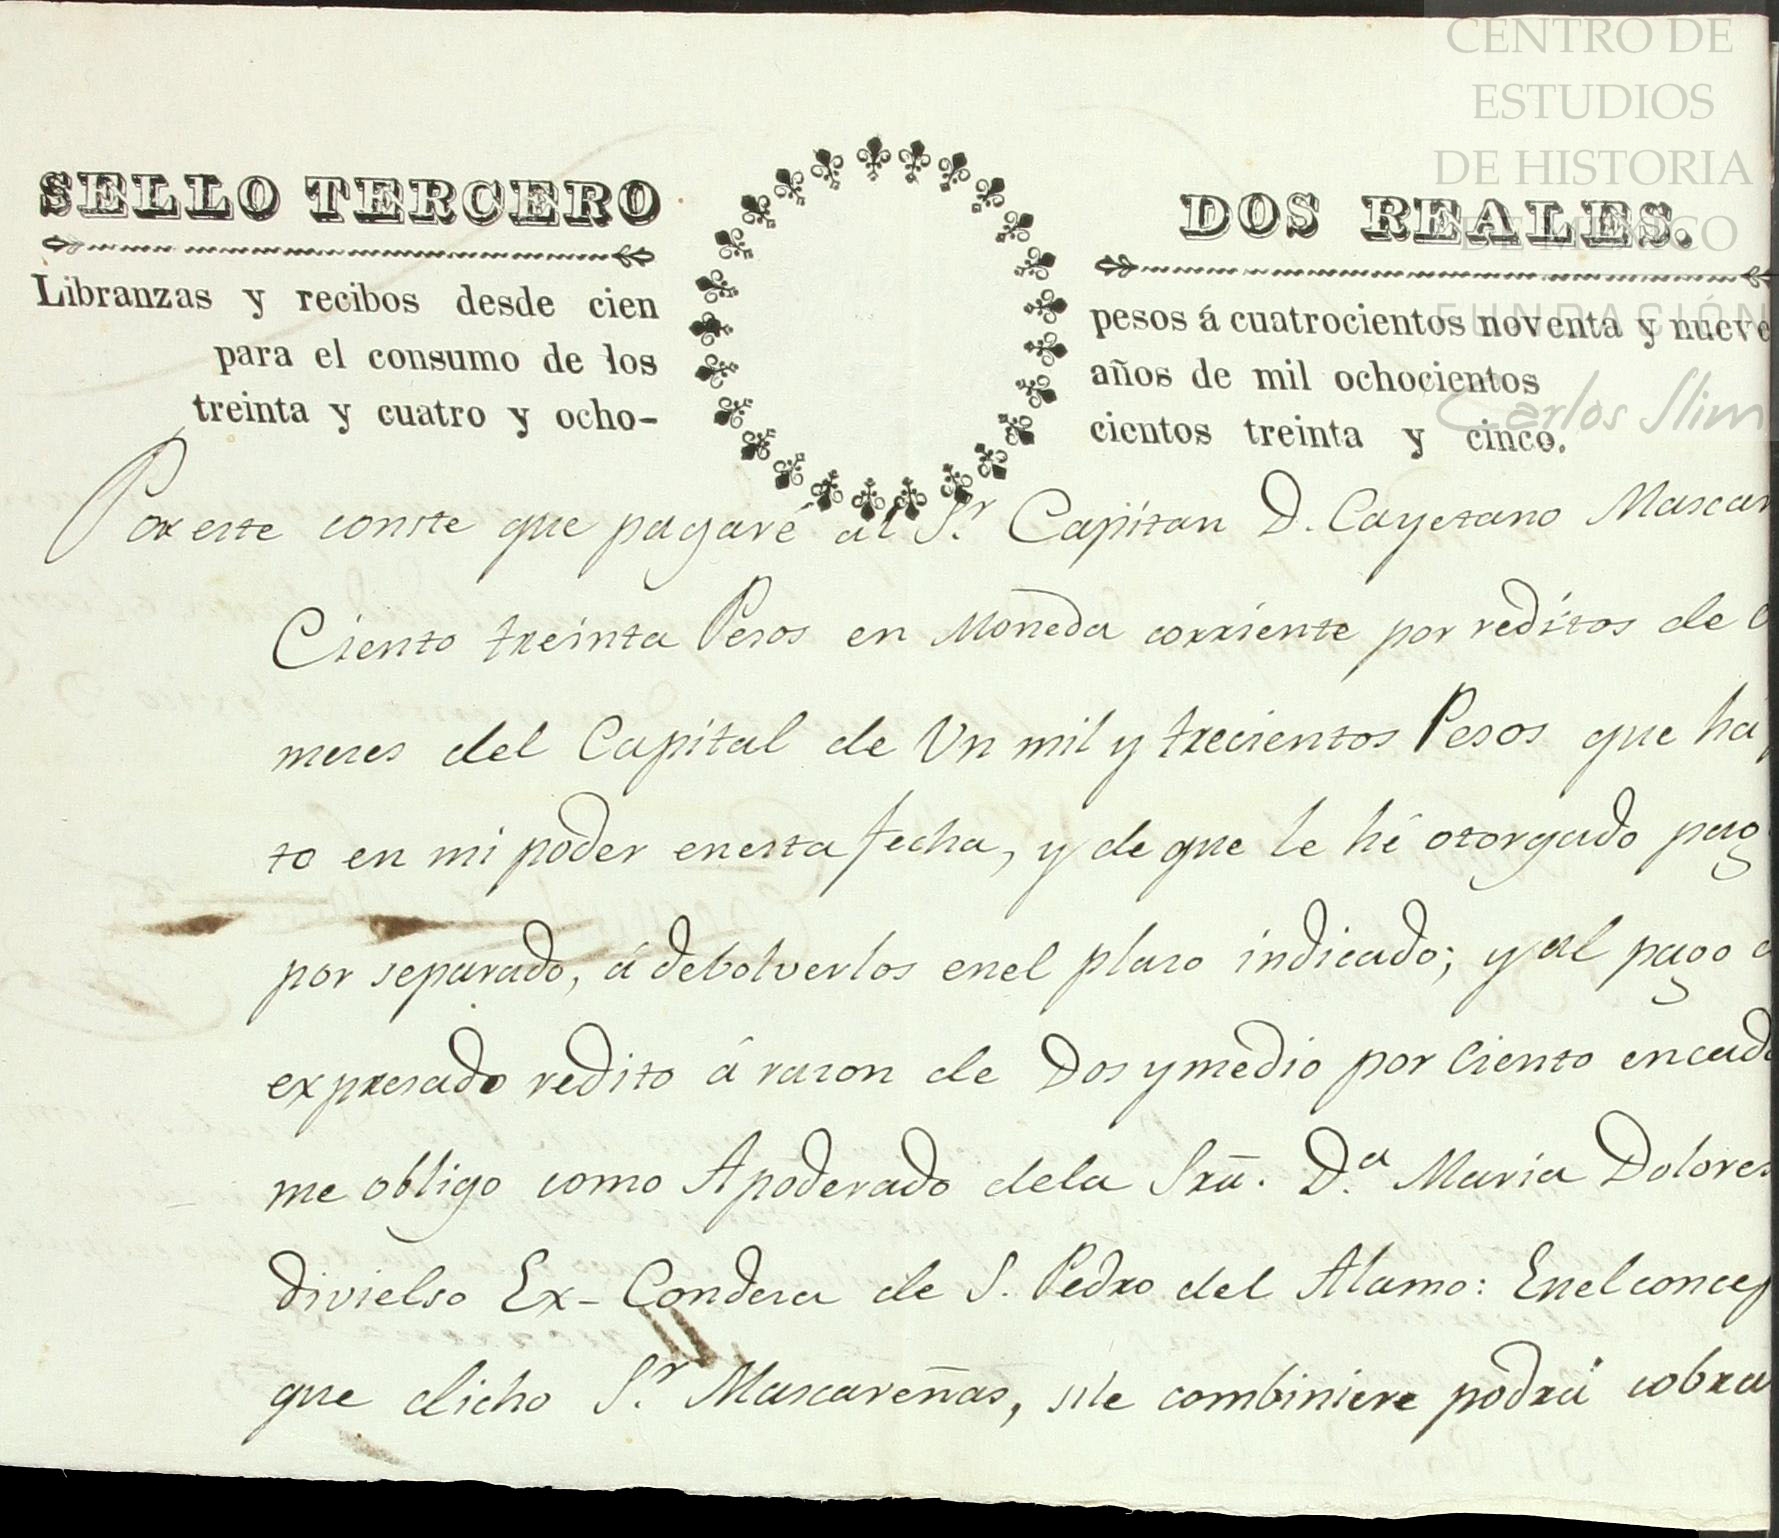 CENTRO DE
ESTUDIOS
DE HISTORIA
DE MÉXICO
FUNDACIÓN
Carlos Slim
SELLO TERCERO
DOS REALES.
Libranzas y recibos desde cien pesos á cuatrocientos noventa y nueve
para el consumo de los años de mil ochocientos
treinta y cuatro y ocho- cientos treinta y cinco.
Por este conste que pagaré al S.r Capitan D. Cayetano Mascar
Ciento treinta Pesos en Moneda corriente por reditos de
meses del Capital de Un mil y trecientos Pesos que ha
to en mi poder enesta fecha, y de que le hé otorgado pag
por separado, á debolverlos enel plaso indicado; y al pago
expresado redito á rason de Dos y medio por Ciento encada
me obligo como Apoderado dela Sra. D.a Maria Dolores
divielso Ex-Condesa de S. Pedro del Alamo: Enel concep
que dicho S.r Mascareñas, sile combiniere podrá cobra